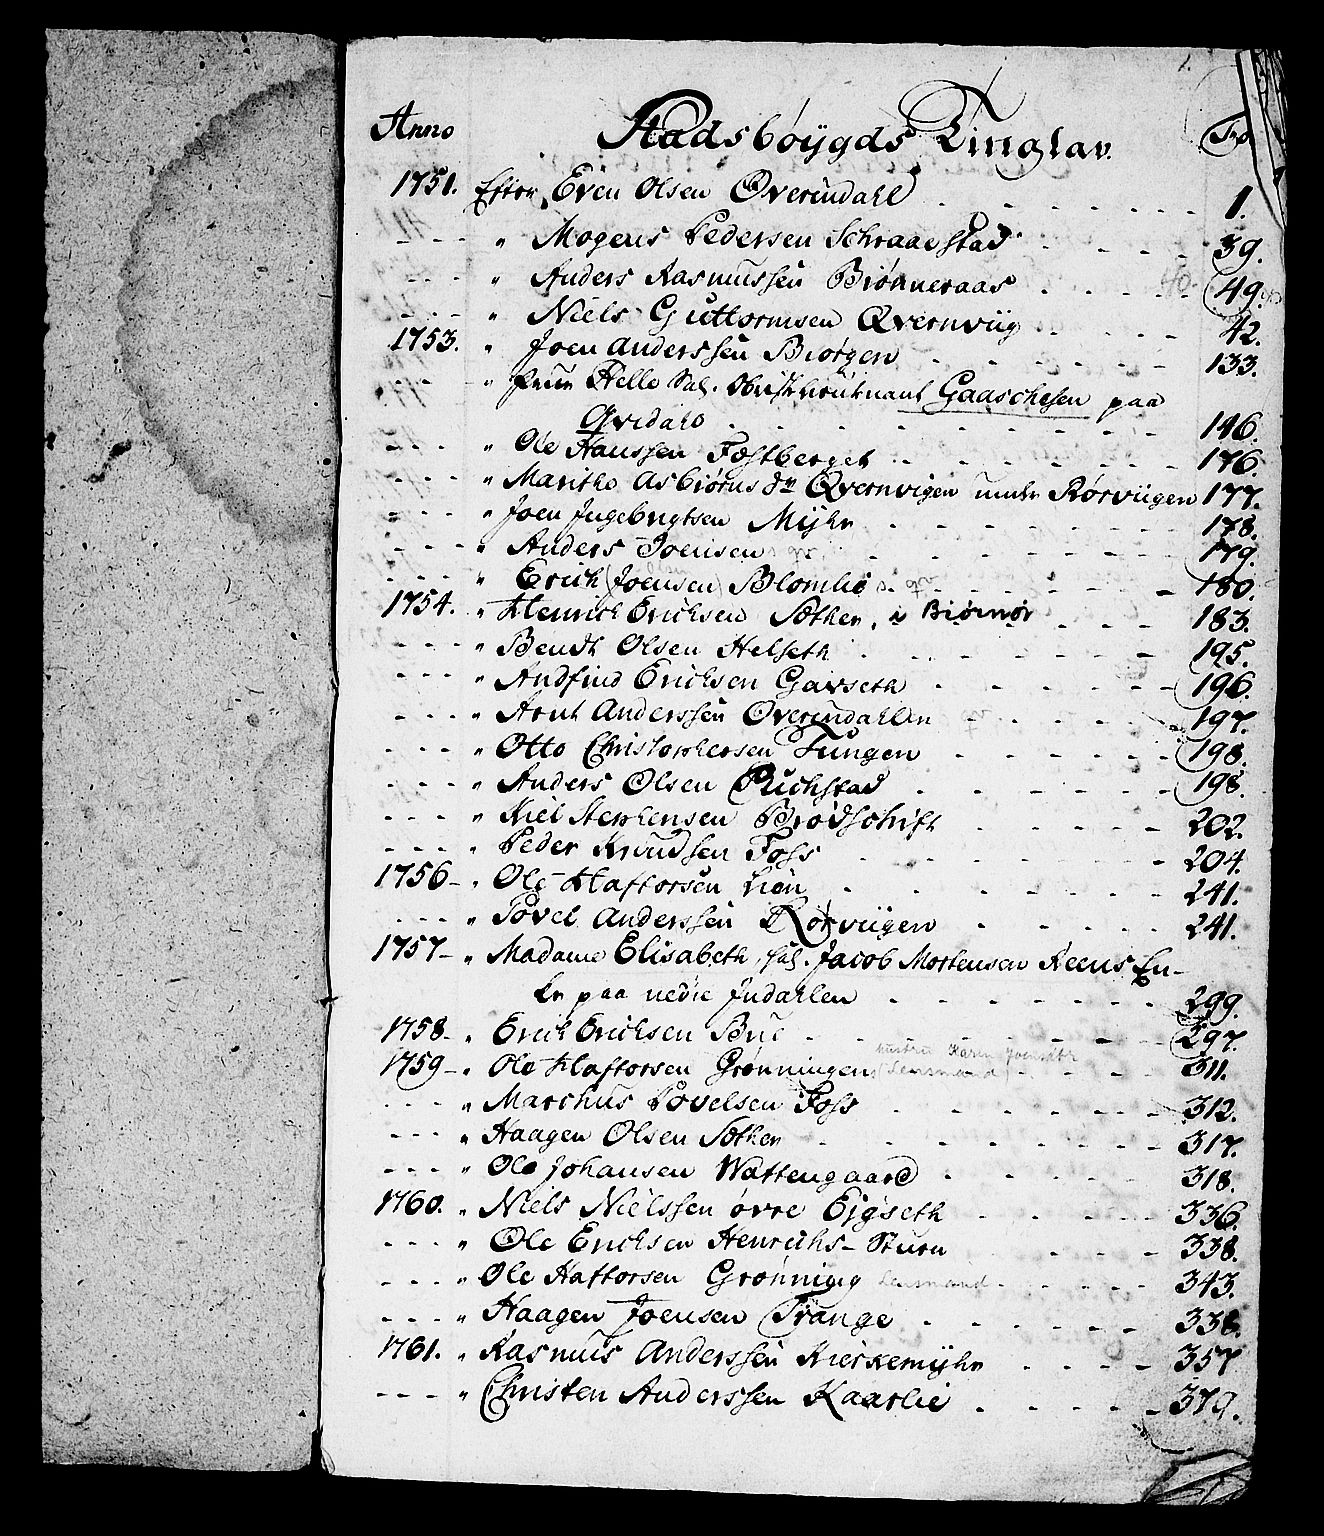 1.
Anno Stadsbøÿgds Tinglav. Fo.
1751. Efter Even Olsen Øverindahl 1.
" Mogens Pedersen Schraaestad 39.
" Anders Rasmussen Biønneraas 49.
" Niels Guttormsen Qvernviig 42.
1753. " Joen Anderssen Biørgen 133.
" Helle Sal. Obristlieutnant Gaaschesen paa
Qvidaho 146.
" Ole Hanssen Fæstberget 176.
" Marithe Asbiørns dr Qvernvigen under Rørviigen 177.
" Joen Ingebrigtsen Mÿhr 178.
" Anders Joensen 179.
" Erich (Joensen) Blomlie 180.
1754. " Henrich Erichsen Sæther, i Biørnør 183.
" Bendt Olsen Helseth 195.
" Andfind Erichsen Gavseth 196.
" Arnt Anderssen Øverindahlen 197.
" Otto Christophersen Tungen 198.
" Anders Olsen Ruchstad 198.
" Niel Stephensen Brødschift 202.
" Peder Knudsen Foss 204.
1756 - " Ole Haftorsen Lien 241.
" Povel Anderssen Rørviigen 241.
1757 - " Madame Elisabeth, sal. Jacob Mortensen Reens En-
ke paa nedre Indahlen 299.
1758 - " Erich Erichsen Bue 297.
hustru Karen Joensdtr
1759 - " Ole Haftorsen Grønningen Lensmand 311.
" Marchus Povelsen Foss 312.
" Haagen Olsen Sæther 317.
" Ole Johansen Wattengaard 318.
1760. " Niels Nielssen øvre Ejgseth 336.
" Ole Erichsen Henrichs-Stuen 338.
" Ole Haftorsen Grønning Lensmand 343.
" Haagen Joensen Trange 338.
1761. " Rasmus Anderssen Kierkemÿhr 357
" Christen Anderssen Kaarlie 379.